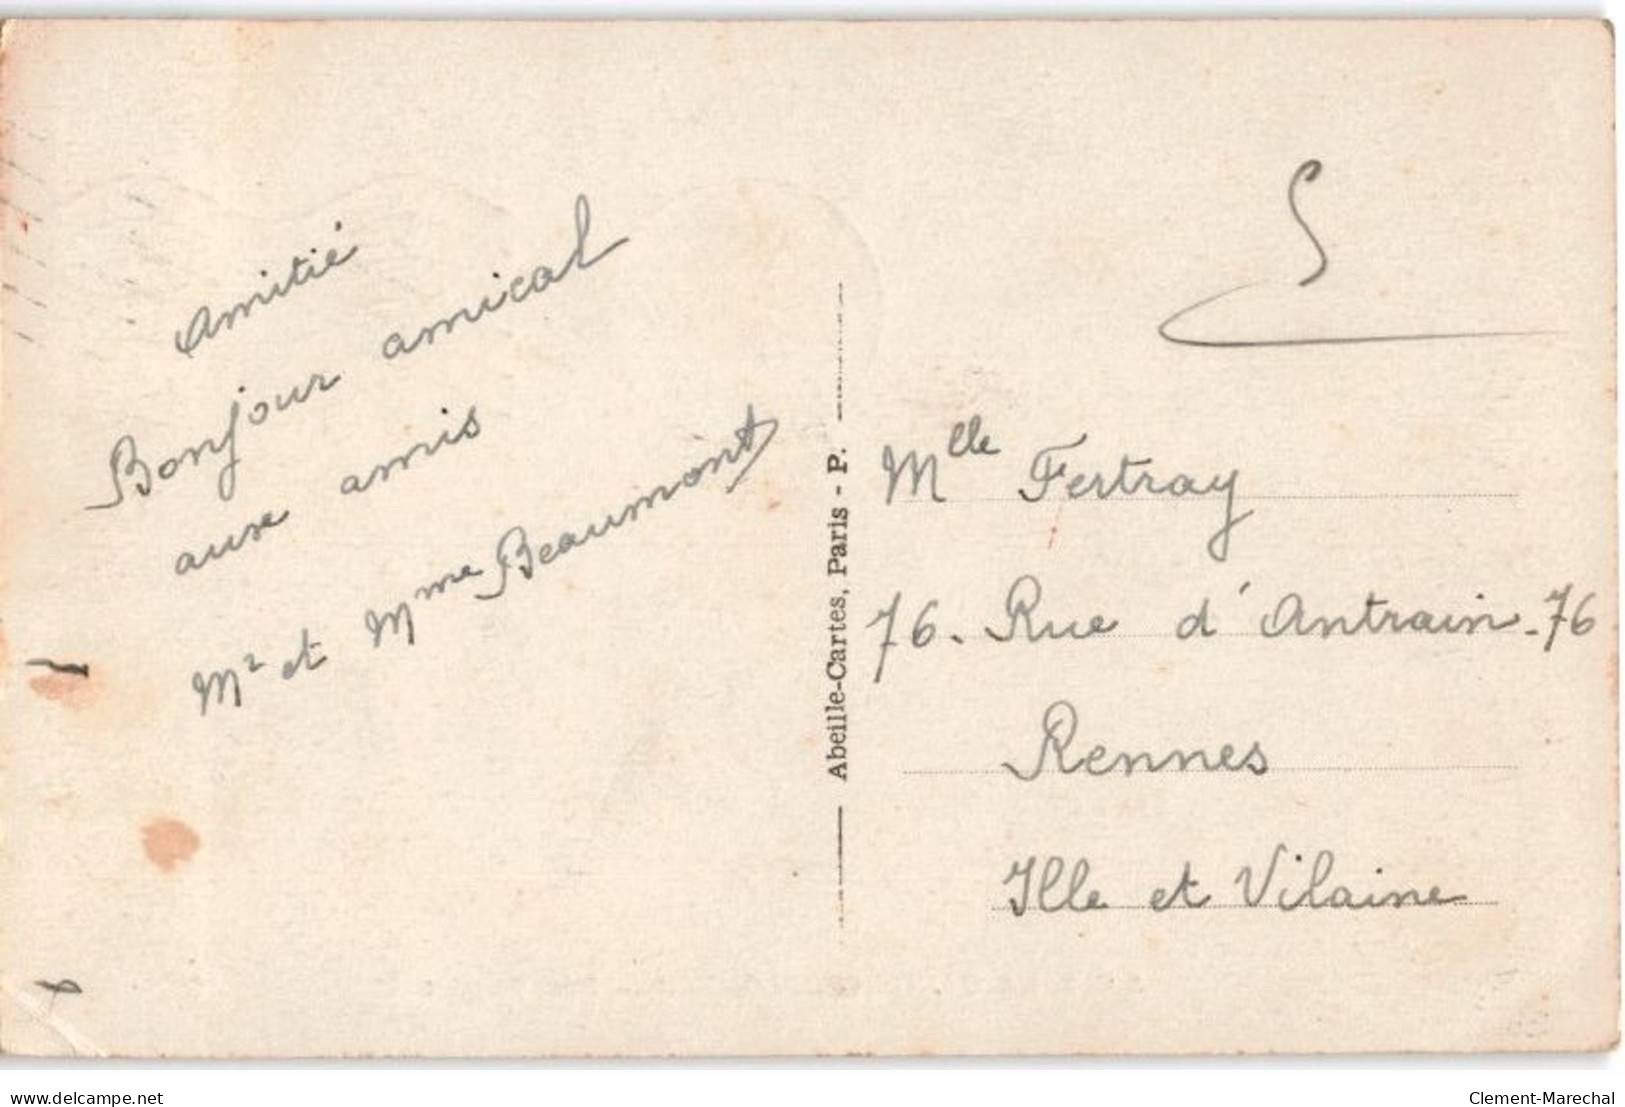 Amitié
Bonjour amical
aux amis
Mr et Mme Beaumont
Abeille-Cartes, Paris - P.
Mlle Fertray
76. Rue d'Antrain. 76
Rennes
Ille et Vilaine
delcampe.net
Clement-Marechal